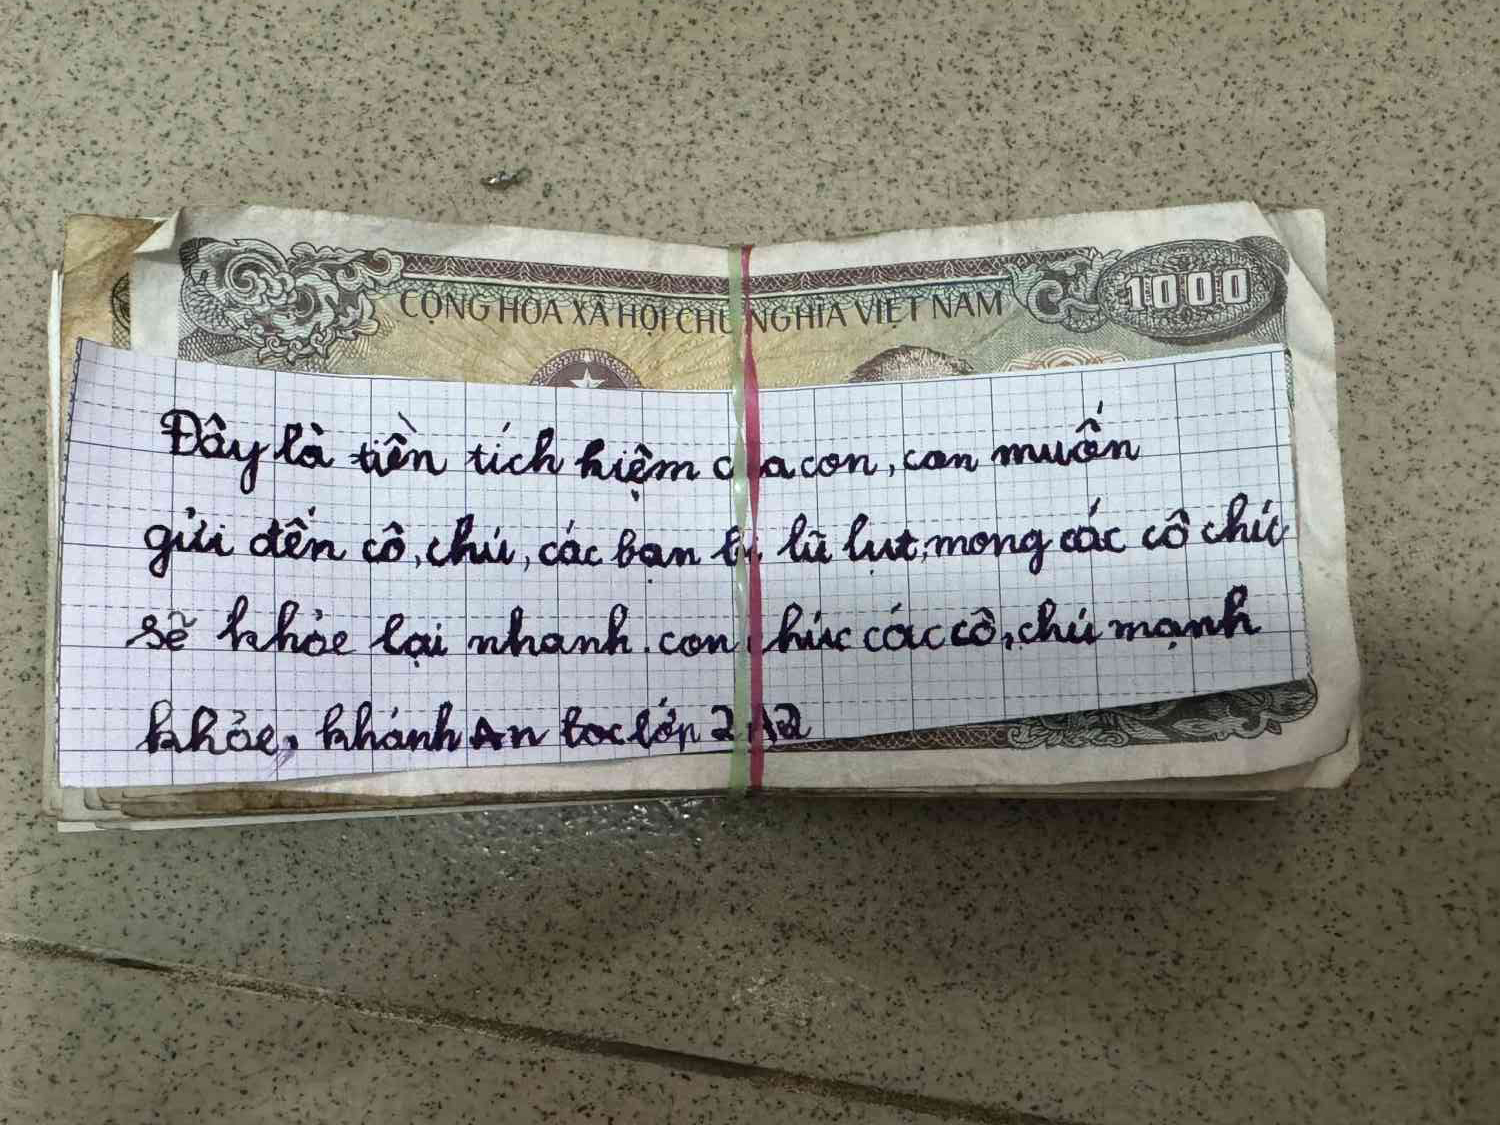 CỘNG HÒA XÃ HỘI CHỦ NGHĨA VIỆT NAM
1000
Đây là tiền tích kiệm của con, con muốn
gửi đến cô, chú, các bạn bị lũ lụt, mong các cô chú
sẽ khỏe lại nhanh. con chúc các cô, chú mạnh
khỏe, khánh An lớp 2A2